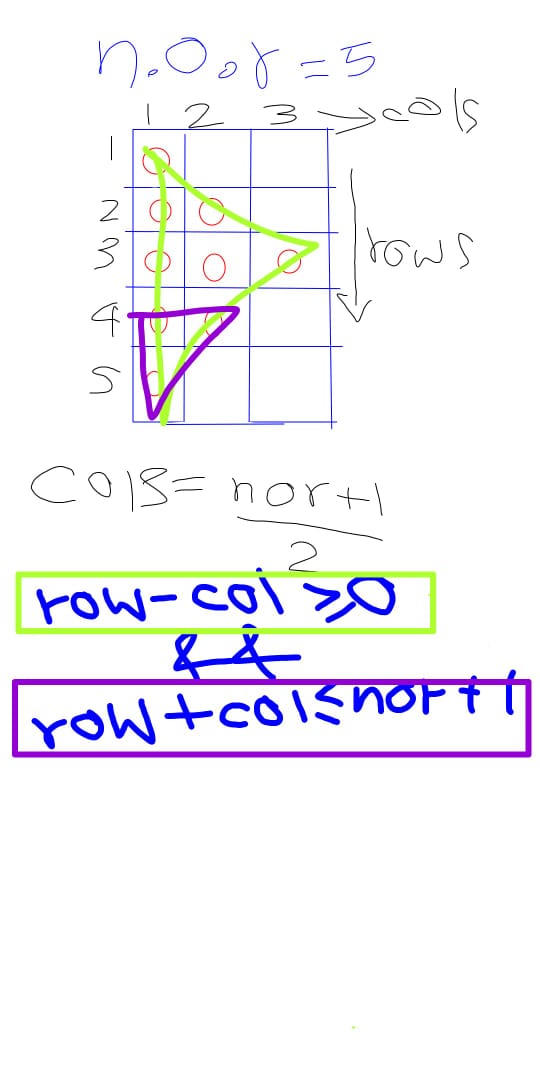 n.o.r = 5
1 2 3 → cols
1
2
3
4
5
rows
cols = nor+1
2
row-col ≥0
&&
row+col≤nor+1